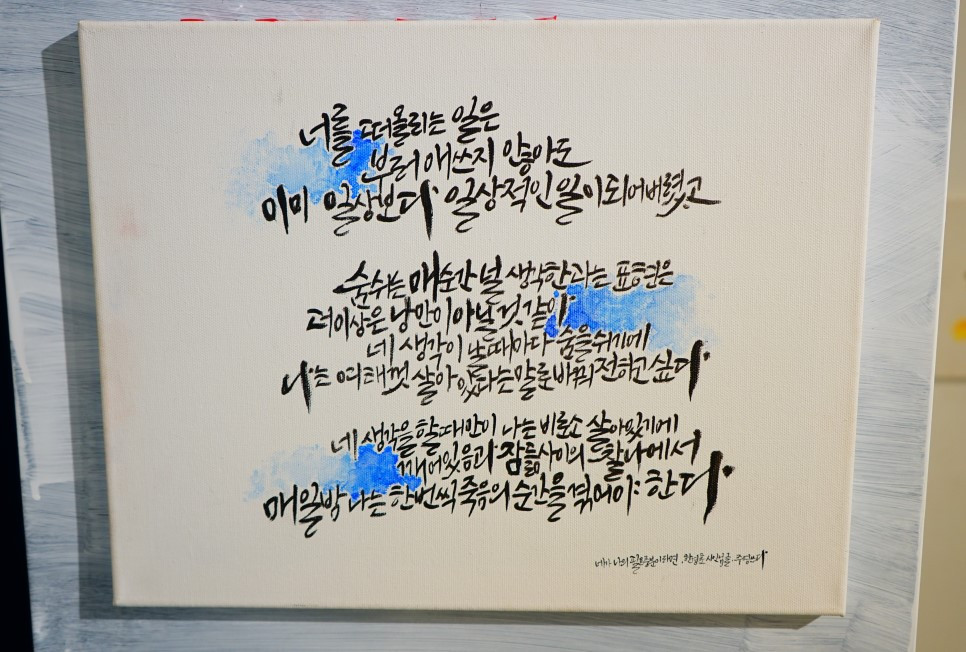 너를 떠올리는 일은
부러 애쓰지 않아도
이미 일상보다 일상적인 일이 되어버렸고
숨쉬는 매순간 널 생각한다는 표현은
더이상은 낭만이 아닐것 같아
네 생각이 날 때마다 숨을 쉬기에
나는 여태껏 살아있다는 말로 바꿔 전하고 싶다
네 생각을 할 때만이 나는 비로소 살아있기에
깨어있음과 잠듦 사이의 찰나에서
매일밤 나는 한번씩 죽음의 순간을 겪어야 한다
네가 나의